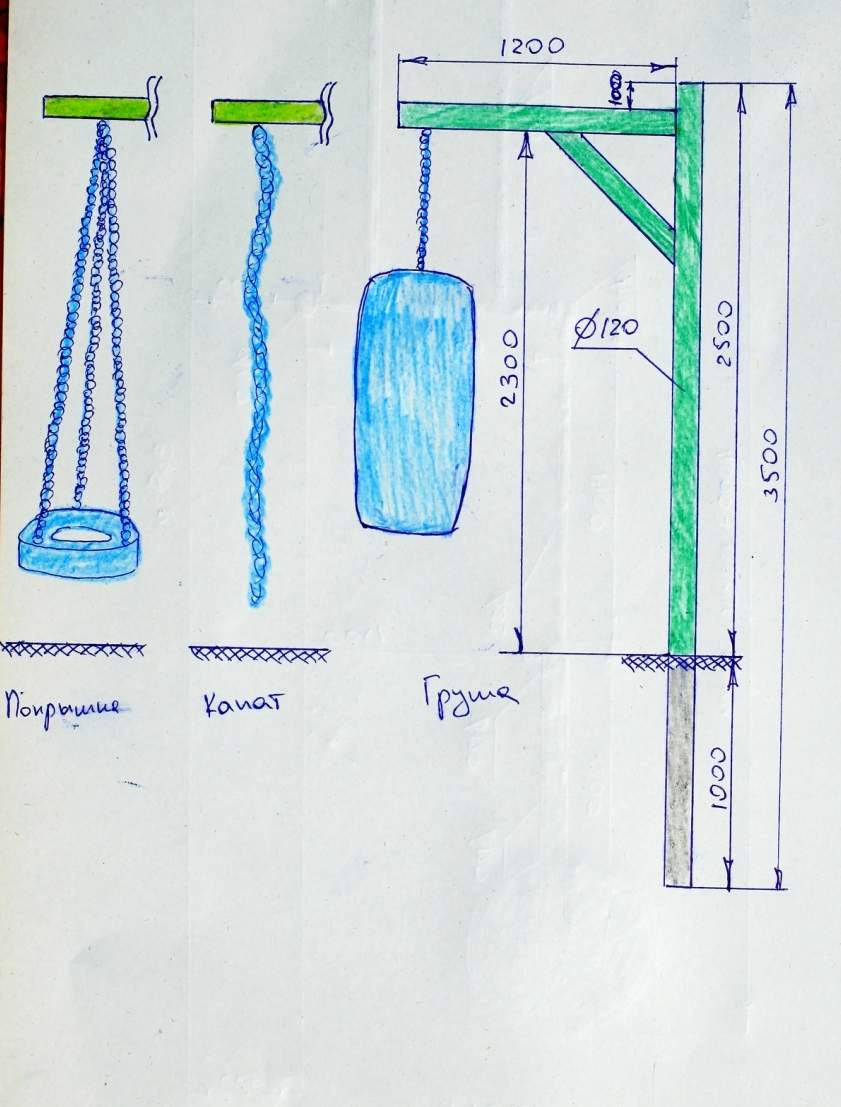 1200
2300
Ø120
2500
3500
1000
Покрышка
Канат
Груша